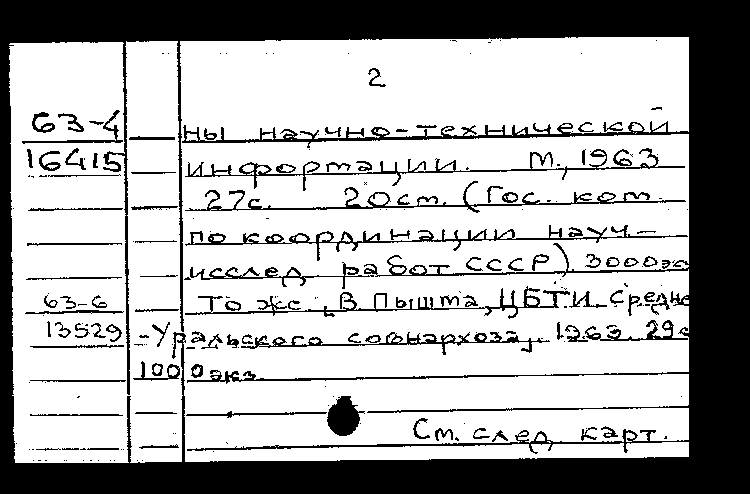 2
63-4 ны научно-технической
16415 информации. М., 1963
27с. 20см. (Гос. ком.
по координации науч.-
исслед. работ СССР) 3000эк
63-6 То же. В. Пышма, ЦБТИ Средне
13529 -Уральского совнархоза, 1963. 29с
1000экз.
См. след. карт.